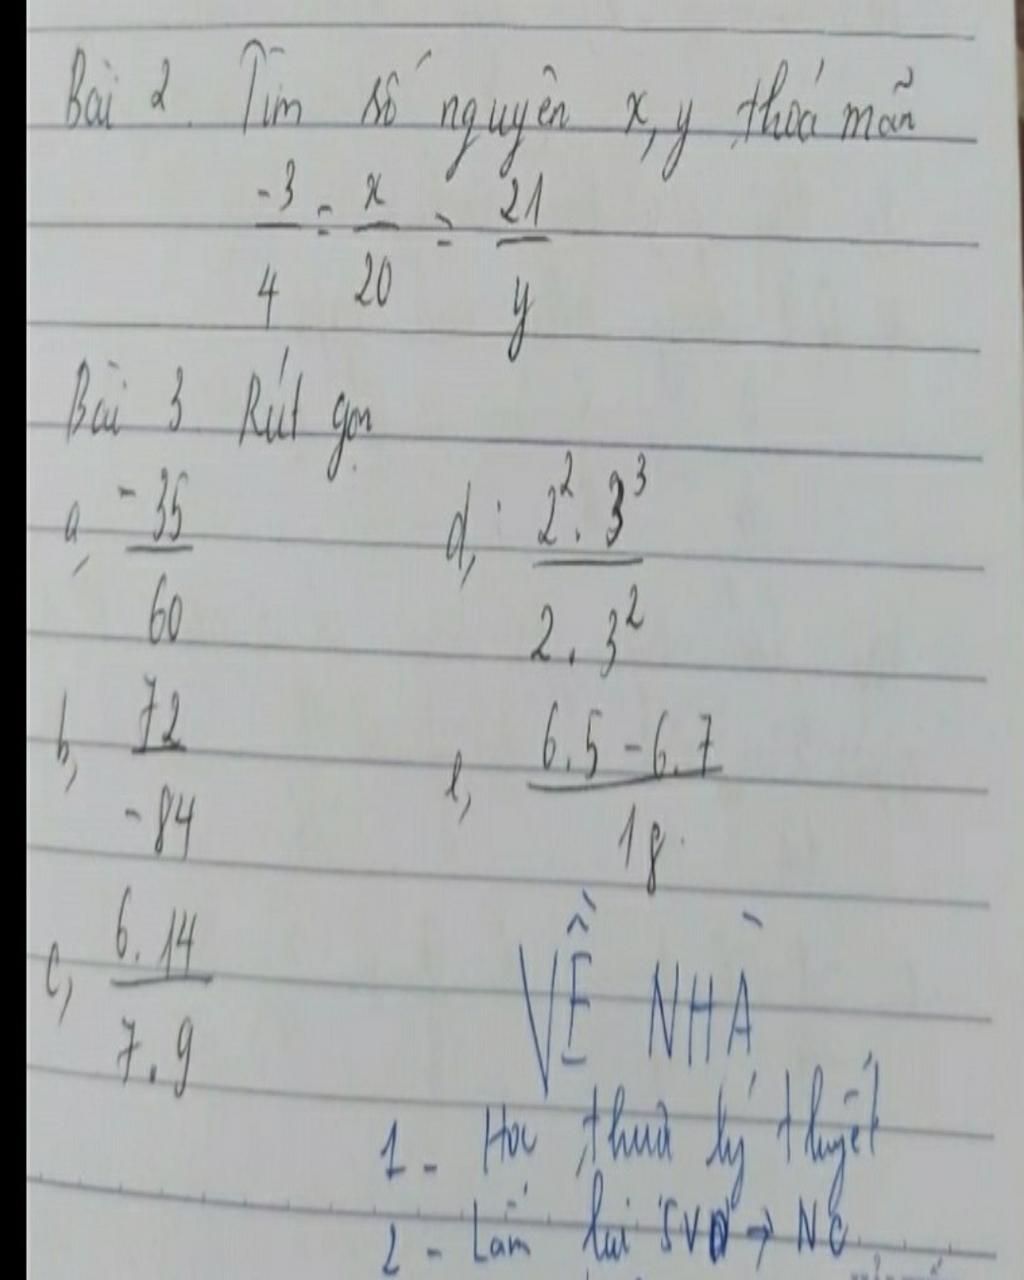 Bài 2. Tìm số nguyên x, y thoả mãn
-3/4 = x/20 = 21/y
Bài 3 Rút gọn
a, -35/60
d, 2². 3³ / 2. 3²
b, 72/-84
e, 6.5 - 6.7 / 18
c, 6. 14 / 7. 9
VỀ NHÀ
1 - Học thuộc lý thuyết
2 - Làm lại